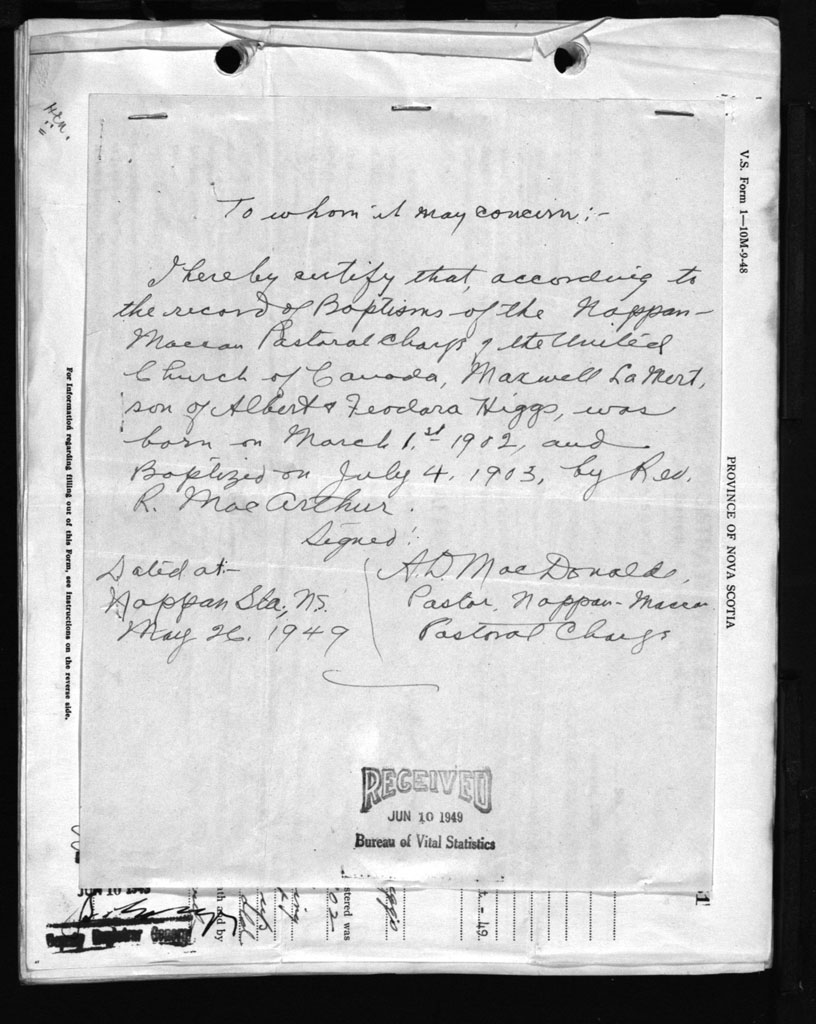 V.S. Form 1—10M-9-48
PROVINCE OF NOVA SCOTIA
For information regarding filling out of this Form, see instructions on the reverse side.
To whom it may concern:-
I hereby certify that, according to
the record of Baptisms of the Nappan-
Maccan Pastoral Charge of the United
Church of Canada, Maxwell LaMert,
son of Albert & Feodora Higgs, was
born on March 1st 1902, and
Baptized on July 4, 1903, by Rev.
R. MacArthur.
Signed:
Dated at:-
Nappan Sta; N.S.
May 26, 1949
A.D. MacDonald,
Pastor, Nappan-Maccan
Pastoral Charge
RECEIVED
JUN 10 1949
Bureau of Vital Statistics
JUN 10 1949
Deputy Registrar General
th and by
stered was
02
49.
1